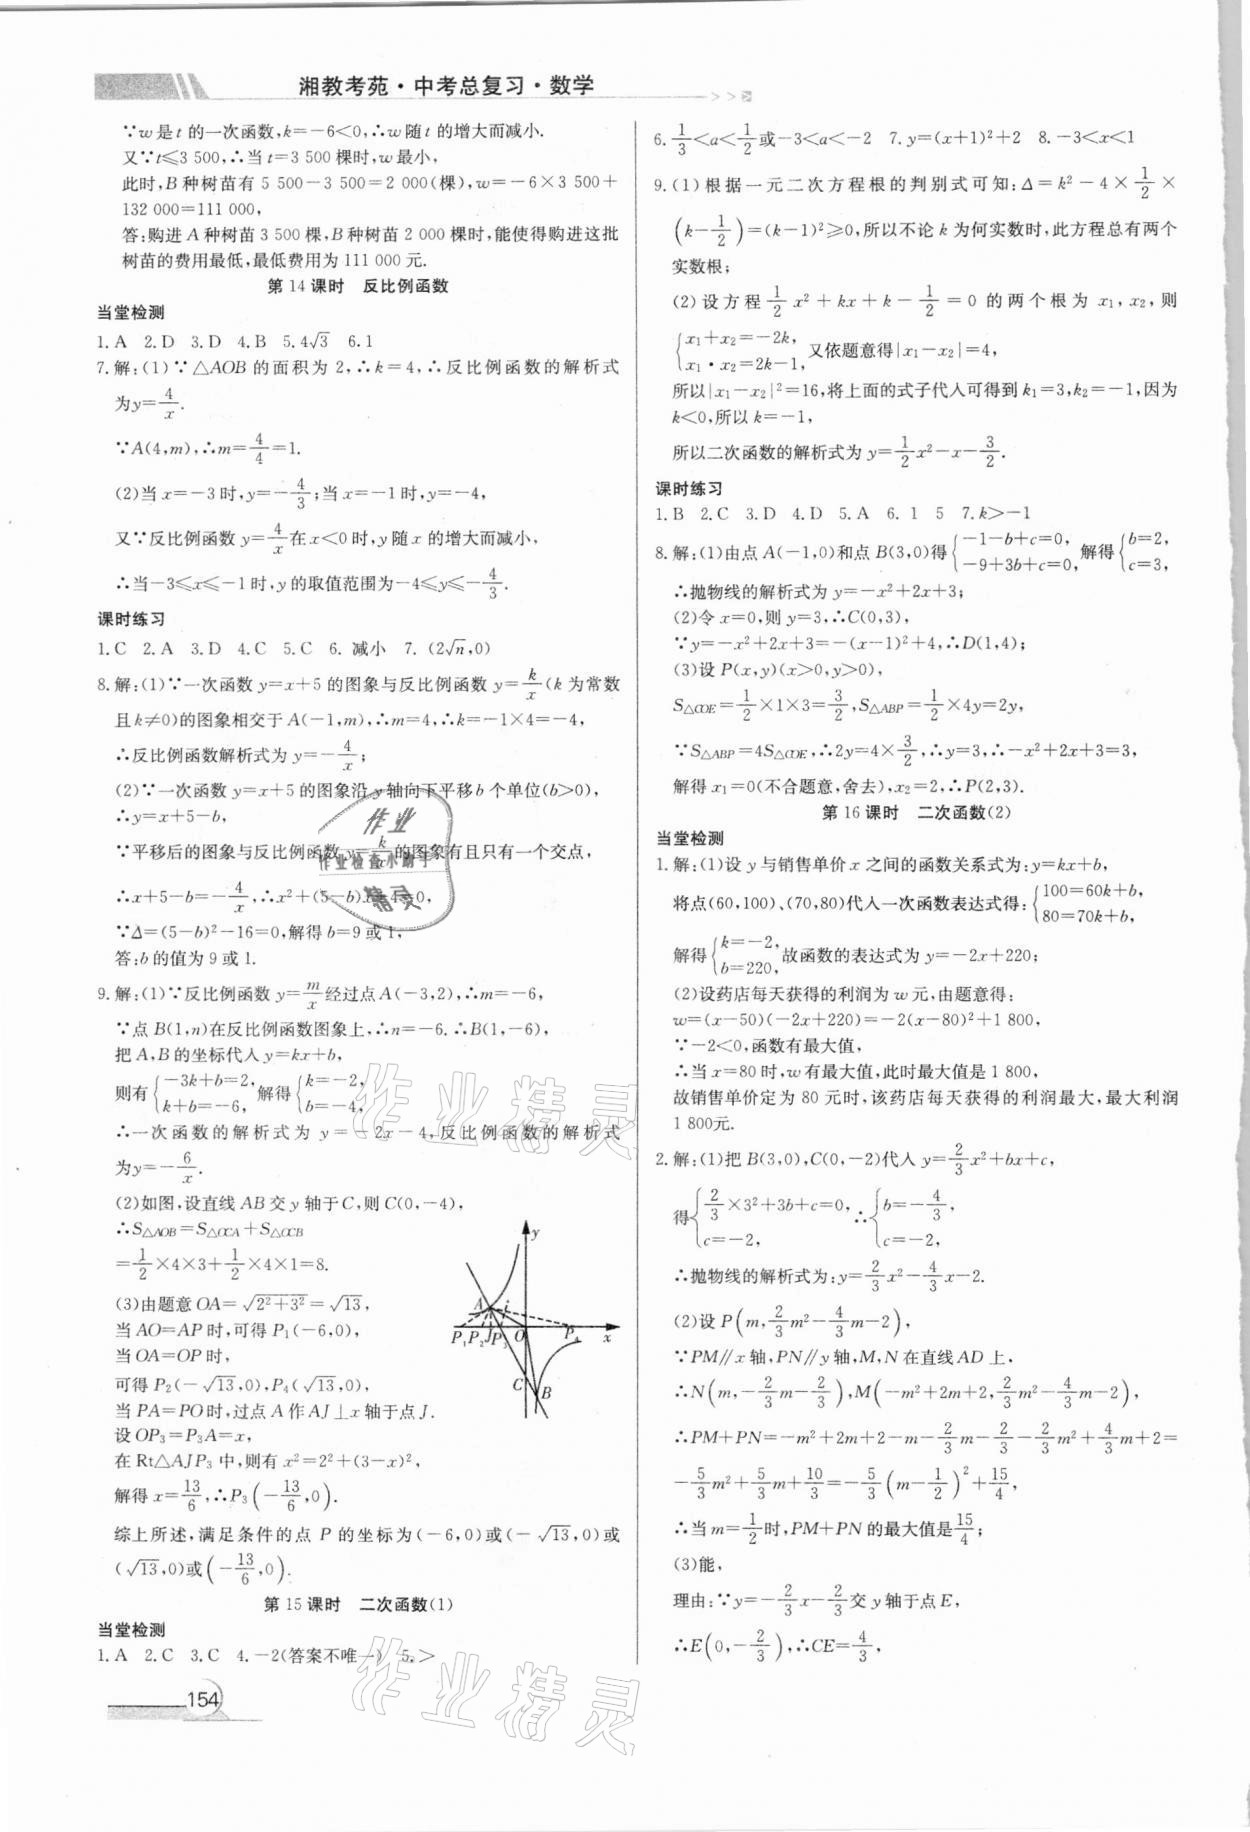 湘教考苑·中考总复习·数学
∵w是t的一次函数,k=-6<0,∴w随t的增大而减小.
又∵t≤3 500,∴当t=3 500棵时,w最小,
此时,B种树苗有5 500-3 500=2 000(棵),w=-6×3 500+
132 000=111 000,
答:购进A种树苗3 500棵,B种树苗2 000棵时,能使得购进这批
树苗的费用最低,最低费用为111 000元.
第14课时 反比例函数
当堂检测
1.A 2.D 3.D 4.B 5.4√3 6.1
7.解:(1)∵△AOB的面积为2,∴k=4,∴反比例函数的解析式
为y=4/x.
∵A(4,m),∴m=4/4=1.
(2)当x=-3时,y=-4/3;当x=-1时,y=-4,
又∵反比例函数y=4/x在x<0时,y随x的增大而减小,
∴当-3≤x≤-1时,y的取值范围为-4≤y≤-4/3.
课时练习
1.C 2.A 3.D 4.C 5.C 6.减小 7.(2√n,0)
8.解:(1)∵一次函数y=x+5的图象与反比例函数y=k/x(k为常数
且k≠0)的图象相交于A(-1,m),∴m=4,∴k=-1×4=-4,
∴反比例函数解析式为y=-4/x;
(2)∵一次函数y=x+5的图象沿y轴向下平移b个单位(b>0),
∴y=x+5-b,
∵平移后的图象与反比例函数y=k/x的图象有且只有一个交点,
∴x+5-b=-4/x,∴x²+(5-b)x+4=0,
∵Δ=(5-b)²-16=0,解得b=9或1,
答:b的值为9或1.
9.解:(1)∵反比例函数y=m/x经过点A(-3,2),∴m=-6,
∵点B(1,n)在反比例函数图象上,∴n=-6.∴B(1,-6),
把A,B的坐标代入y=kx+b,
则有{-3k+b=2, k+b=-6, 解得{k=-2, b=-4,
∴一次函数的解析式为y=-2x-4,反比例函数的解析式
为y=-6/x.
(2)如图,设直线AB交y轴于C,则C(0,-4),
∴S△AOB=S△OCA+S△OCB
=1/2×4×3+1/2×4×1=8.
(3)由题意OA=√(2²+3²)=√13,
当AO=AP时,可得P₁(-6,0),
当OA=OP时,
可得P₂(-√13,0),P₄(√13,0),
当PA=PO时,过点A作AJ⊥x轴于点J.
设OP₃=P₃A=x,
在Rt△AJP₃中,则有x²=2²+(3-x)²,
解得x=13/6,∴P₃(-13/6,0).
综上所述,满足条件的点P的坐标为(-6,0)或(-√13,0)或
(√13,0)或(-13/6,0).
y
A
P₁ P₂ J P₃ O P₄ x
C
B
第15课时 二次函数(1)
当堂检测
1.A 2.C 3.C 4.-2(答案不唯一) 5.>
154
6.1/3<a<1/2或-3<a<-2 7.y=(x+1)²+2 8.-3<x<1
9.(1)根据一元二次方程根的判别式可知:Δ=k²-4×1/2×
(k-1/2)=(k-1)²≥0,所以不论k为何实数时,此方程总有两个
实数根;
(2)设方程1/2x²+kx+k-1/2=0的两个根为x₁,x₂,则
{x₁+x₂=-2k, x₁·x₂=2k-1, 又依题意得|x₁-x₂|=4,
所以|x₁-x₂|²=16,将上面的式子代入可得到k₁=3,k₂=-1,因为
k<0,所以k=-1,
所以二次函数的解析式为y=1/2x²-x-3/2.
课时练习
1.B 2.C 3.D 4.D 5.A 6.1 5 7.k>-1
8.解:(1)由点A(-1,0)和点B(3,0)得{-1-b+c=0, -9+3b+c=0, 解得{b=2, c=3,
∴抛物线的解析式为y=-x²+2x+3;
(2)令x=0,则y=3,∴C(0,3),
∵y=-x²+2x+3=-(x-1)²+4,∴D(1,4);
(3)设P(x,y)(x>0,y>0),
S△COE=1/2×1×3=3/2,S△ABP=1/2×4y=2y,
∵S△ABP=4S△COE,∴2y=4×3/2,∴y=3,∴-x²+2x+3=3,
解得x₁=0(不合题意,舍去),x₂=2,∴P(2,3).
第16课时 二次函数(2)
当堂检测
1.解:(1)设y与销售单价x之间的函数关系式为:y=kx+b,
将点(60,100)、(70,80)代入一次函数表达式得:{100=60k+b, 80=70k+b,
解得{k=-2, b=220, 故函数的表达式为y=-2x+220;
(2)设药店每天获得的利润为w元,由题意得:
w=(x-50)(-2x+220)=-2(x-80)²+1 800,
∵-2<0,函数有最大值,
∴当x=80时,w有最大值,此时最大值是1 800,
故销售单价定为80元时,该药店每天获得的利润最大,最大利润
1 800元.
2.解:(1)把B(3,0),C(0,-2)代入y=2/3x²+bx+c,
得{2/3×3²+3b+c=0, c=-2, ∴{b=-4/3, c=-2,
∴抛物线的解析式为:y=2/3x²-4/3x-2.
(2)设P(m,2/3m²-4/3m-2),
∵PM∥x轴,PN∥y轴,M,N在直线AD上,
∴N(m,-2/3m-2/3),M(-m²+2m+2,2/3m²-4/3m-2),
∴PM+PN=-m²+2m+2-m-2/3m-2/3-2/3m²+4/3m+2=
-5/3m²+5/3m+10/3=-5/3(m-1/2)²+15/4,
∴当m=1/2时,PM+PN的最大值是15/4;
(3)能,
理由:∵y=-2/3x-2/3交y轴于点E,
∴E(0,-2/3),∴CE=4/3,
作业
作业检查小助手
精灵
作业精灵
作业精灵